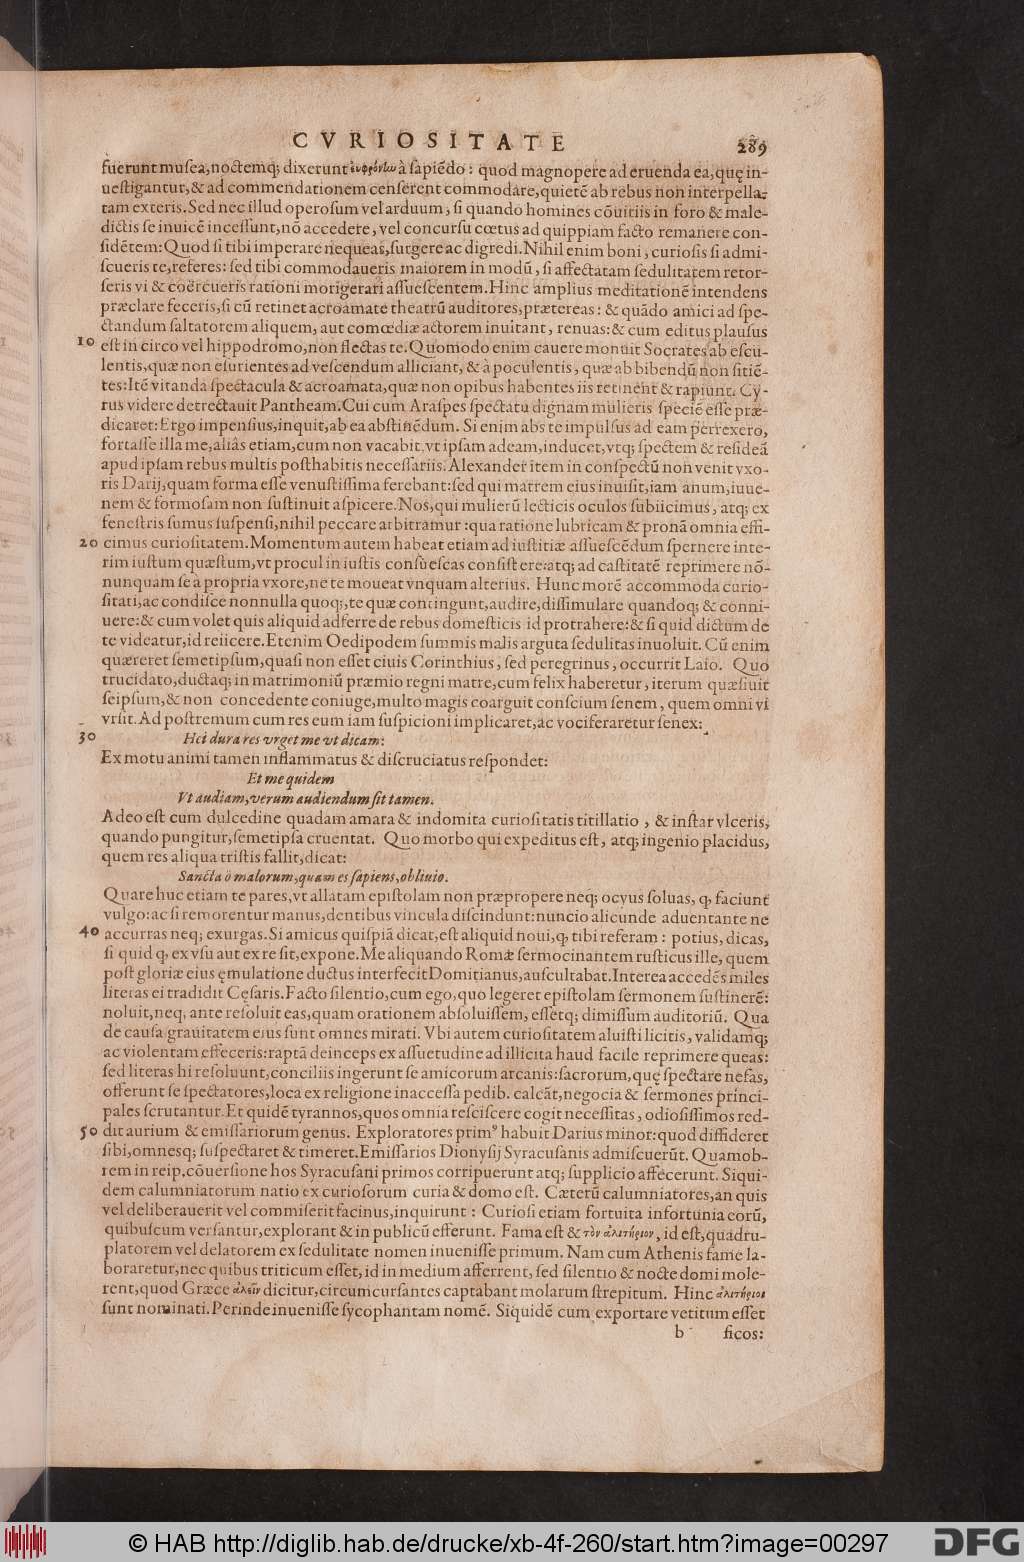 CVRIOSITATE 289
fuerunt musea, noctemq; dixerunt εὐφρόνlω à sapiẽdo: quod magnopere ad eruenda ea, quę in-
uestigantur, & ad commendationem censerent commodare, quietẽ ab rebus non interpella-
tam exteris. Sed nec illud operosum vel arduum, si quando homines cõuitiis in foro & male-
dictis se inuicẽ incessunt, nõ accedere, vel concursu cœtus ad quippiam facto remanere con-
sidẽtem: Quod si tibi imperare nequeas, surgere ac digredi. Nihil enim boni, curiosis si admi-
scueris te, referes: sed tibi commodaueris maiorem in modũ, si affectatam sedulitatem retor-
seris vi & coërcueris rationi morigerari assuescentem. Hinc amplius meditationẽ intendens
præclare feceris, si cũ retinet acroamate theatrũ auditores, prætereas: & quãdo amici ad spe-
ctandum saltatorem aliquem, aut comœdiæ actorem inuitant, renuas: & cum editus plausus
10 est in circo vel hippodromo, non flectas te. Quomodo enim cauere monuit Socrates ab escu-
lentis, quæ non esurientes ad vescendum alliciant, & à poculentis, quæ ab bibendũ non sitiẽ-
tes: Itẽ vitanda spectacula & acroamata, quæ non opibus habentes iis retinent & rapiunt. Cy-
rus videre detrectauit Pantheam. Cui cum Araspes spectatu dignam mulieris speciẽ esse præ-
dicaret: Ergo impensius, inquit, ab ea abstinẽdum. Si enim abs te impulsus ad eam perrexero,
fortasse illa me, aliàs etiam, cum non vacabit, vt ipsam adeam, inducet, vtq; spectem & resideã
apud ipsam rebus multis posthabitis necessariis. Alexander item in conspectũ non venit vxo-
ris Darij, quam forma esse venustissima ferebant: sed qui matrem eius inuisit, iam anum, iuue-
nem & formosam non sustinuit aspicere. Nos, qui mulierũ lecticis oculos subiicimus, atq; ex
fenestris sumus suspensi, nihil peccare arbitramur: qua ratione lubricam & pronã omnia effi-
20 cimus curiositatem. Momentum autem habeat etiam ad iustitiæ assuescẽdum spernere inte-
rim iustum quæstum, vt procul iniustis consuescas consistere: atq; ad castitatẽ reprimere nõ-
nunquam se à propria vxore, ne te moueat vnquam alterius. Hunc morẽ accommoda curio-
sitati, ac condisce nonnulla quoq;, te quæ contingunt, audire, dissimulare quandoq; & conni-
uere: & cum volet quis aliquid adferre de rebus domesticis id protrahere: & si quid dictum de
te videatur, id reiicere. Etenim Oedipodem summis malis arguta sedulitas inuoluit. Cũ enim
quæreret semetipsum, quasi non esset ciuis Corinthius, sed peregrinus, occurrit Laio. Quo
trucidato, ductaq; in matrimoniũ præmio regni matre, cum felix haberetur, iterum quæsiuit
seipsum, & non concedente coniuge, multo magis coarguit conscium senem, quem omni vi
vrsit. Ad postremum cum res eum iam suspicioni implicaret, ac vociferaretur senex:
30 Hei dura res vrget me vt dicam:
Ex motu animi tamen inflammatus & discruciatus respondet:
Et me quidem
Vt audiam, verum audiendum sit tamen.
Adeo est cum dulcedine quadam amara & indomita curiositatis titillatio, & instar vlceris,
quando pungitur, semetipsa cruentat. Quo morbo qui expeditus est, atq; ingenio placidus,
quem res aliqua tristis fallit, dicat:
Sancta ô malorum, quam es sapiens, obliuio.
Quare huc etiam te pares, vt allatam epistolam non præpropere neq; ocyus soluas, q, faciunt
vulgo: ac si remorentur manus, dentibus vincula discindunt: nuncio alicunde aduentante ne
40 accurras neq; exurgas. Si amicus quispiã dicat, est aliquid noui, q, tibi referam: potius, dicas,
si quid q, ex vsu aut ex re sit, expone. Me aliquando Romæ sermocinantem rusticus ille, quem
post gloriæ eius ęmulatione ductus interfecit Domitianus, auscultabat. Interea accedẽs miles
literas ei tradidit Cęsaris. Facto silentio, cum ego, quo legeret epistolam sermonem sustinerẽ:
noluit, neq, ante resoluit eas, quam orationem absoluissem, essetq; dimissum auditoriũ. Qua
de causa grauitatem eius sunt omnes mirati. Vbi autem curiositatem aluisti licitis, validamq;
ac violentam effeceris: raptã deinceps ex assuetudine ad illicita haud facile reprimere queas:
sed literas hi resoluunt, conciliis ingerunt se amicorum arcanis: sacrorum, quę spectare nefas,
offerunt se spectatores, loca ex religione inaccessa pedib. calcãt, negocia & sermones princi-
pales scrutantur. Et quidẽ tyrannos, quos omnia resciscere cogit necessitas, odiosissimos red-
50 dit aurium & emissariorum genus. Exploratores primꝰ habuit Darius minor: quod diffideret
sibi, omnesq; suspectaret & timeret. Emissarios Dionysij Syracusanis admiscuerũt. Quamob-
rem in reip. cõuersione hos Syracusani primos corripuerunt atq; supplicio affecerunt. Siqui-
dem calumniatorum natio ex curiosorum curia & domo est. Cæterũ calumniatores, an quis
vel deliberauerit vel commiserit facinus, inquirunt: Curiosi etiam fortuita infortunia eorũ,
quibuscum versantur, explorant & in publicũ efferunt. Fama est & τὸν ἀλιτήριον, id est, quadru-
platorem vel delatorem ex sedulitate nomen inuenisse primum. Nam cum Athenis fame la-
boraretur, nec quibus triticum esset, id in medium afferrent, sed silentio & nocte domi mole-
rent, quod Græce ἀλεῖν dicitur, circumcursantes captabant molarum strepitum. Hinc ἀλιτήριοι
sunt nominati. Perinde inuenisse sycophantam nomẽ. Siquidẽ cum exportare vetitum esset
b ficos:
© HAB http://diglib.hab.de/drucke/xb-4f-260/start.htm?image=00297 DFG